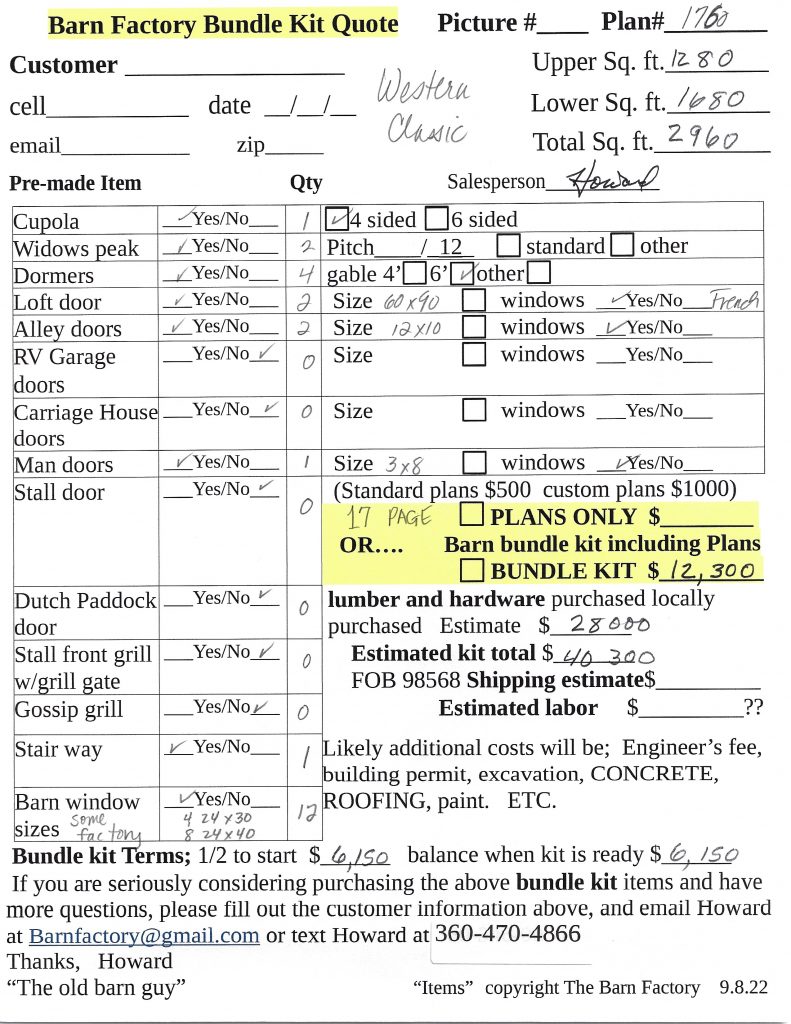 Barn Factory Bundle Kit Quote Picture #____ Plan# 1760
Customer ____________________ Upper Sq. ft. 1280
Western
cell____________ date __/__/__ Lower Sq. ft. 1680
Classic
email____________ zip______ Total Sq. ft. 2960
Pre-made Item Qty Salesperson Howard
Cupola ✓Yes/No___ 1 ☑4 sided ☐6 sided
Widows peak ✓Yes/No___ 2 Pitch____/ 12 ☐ standard ☐ other
Dormers ✓Yes/No___ 4 gable 4’☐ 6’☑ other ☐
Loft door ✓Yes/No___ 2 Size 60x90 ☐ windows ✓Yes/No French
Alley doors ✓Yes/No___ 2 Size 12x10 ☐ windows ✓Yes/No___
RV Garage ___Yes/No✓ 0 Size ☐ windows ___Yes/No___
doors
Carriage House ___Yes/No✓ 0 Size ☐ windows ___Yes/No___
doors
Man doors ✓Yes/No___ 1 Size 3x8 ☐ windows ✓Yes/No___
Stall door ___Yes/No✓ 0 (Standard plans $500 custom plans $1000)
17 PAGE ☐ PLANS ONLY $________
OR.... Barn bundle kit including Plans
☐ BUNDLE KIT $ 12,300
Dutch Paddock ___Yes/No✓ 0 lumber and hardware purchased locally
door purchased Estimate $ 28000
Stall front grill ___Yes/No✓ 0 Estimated kit total $ 40 300
w/grill gate FOB 98568 Shipping estimate$_________
Gossip grill ___Yes/No✓ 0 Estimated labor $_________??
Stair way ✓Yes/No___ 1 Likely additional costs will be; Engineer’s fee,
building permit, excavation, CONCRETE,
Barn window ✓Yes/No___ 12 ROOFING, paint. ETC.
sizes some factory 4 24x30
8 24x40
Bundle kit Terms; 1/2 to start $ 6,150 balance when kit is ready $ 6,150
If you are seriously considering purchasing the above bundle kit items and have
more questions, please fill out the customer information above, and email Howard
at Barnfactory@gmail.com or text Howard at 360-470-4866
Thanks, Howard
“The old barn guy” “Items” copyright The Barn Factory 9.8.22